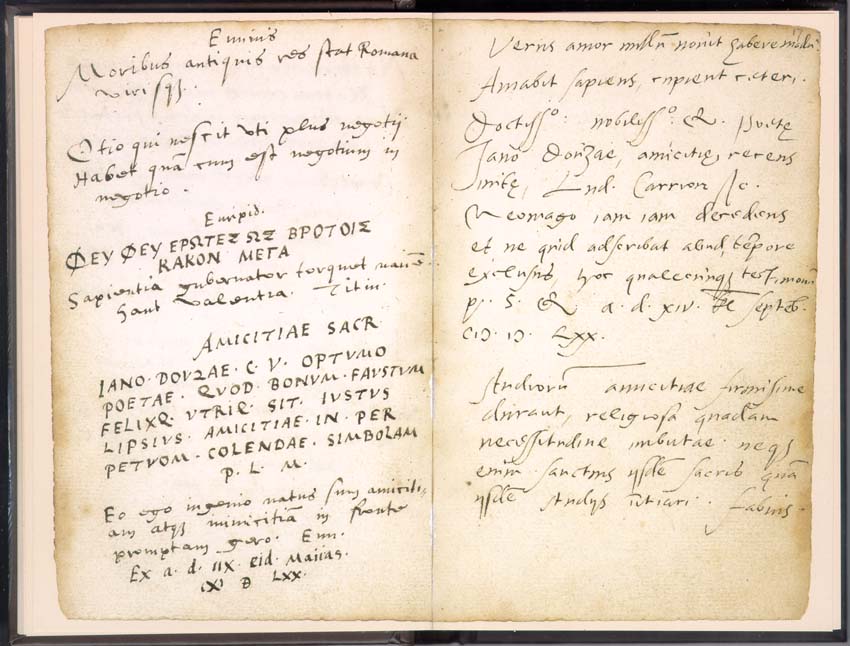 Ennius
Moribus antiquis res stat Romana
virisq3.
Otio qui nescit uti plus negotij
Habet quā cum est negotium in
negotio.
Euripid.
ΦΕΥ ΦΕΥ ΕΡΩΤΕΣ ΩΣ ΒΡΟΤΟΙΣ
ΚΑΚΟΝ ΜΕΓΑ
Sapientia gubernator torquet nauē
haut valentia. Titin.
AMICITIAE SACR
IANO·DOVZAE·C·V·OPTVMO
POETAE·QVOD·BONVM·FAVSTVM
FELIXQ·VTRIQ·SIT·IVSTVS
LIPSIVS·AMICITIAE·IN·PER
PETVOM·COLENDAE·SIMBOLAM
P. L. M.
Eo ego ingenio natus sum amiciti-
am atq3 inimicitiā in fronte
promptam gero. Enn.
Ex a. d. IIX. eid. Maiias.
LXX.
Verus amor nullū novit habere modū.
Amabit sapiens, cupient ceteri.
Doctiss°: nobiliss° &. Poetę
Iano Douzae, amicitię recens
initę, Lud. Carrion
Neomago iam iam decedens
et ne quid adscribat aliud, tēpore
exclusus, hoc qualecunq3 testimoniū
p. S. & a. d. XIV. Septeb.
CIƆ. IƆ. LXX.
Studiorū amicitiae firmissime
durant, religiosa quadam
necessitudine imbutae. neq3
enim sanctius ijsdē sacris quā
ijsdē studijs initiari. Fabius.